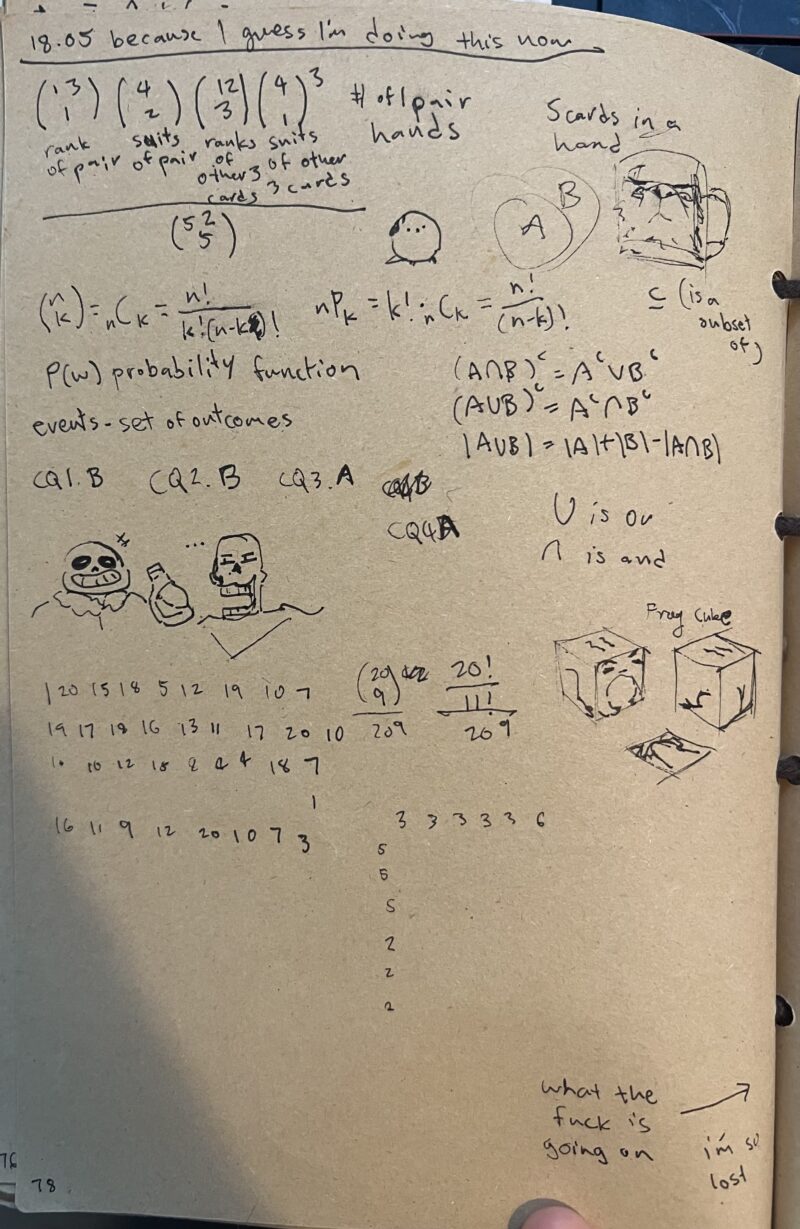 18.05 because I guess I'm doing this now
(13 1) (4 2) (12 3) (4 1)^3 # of 1 pair hands
rank of pair
suits of pair
ranks of other 3 cards
suits of other 3 cards
(52 5)
5 cards in a hand
A B
(n k) = nCk = n!/k!(n-k)! nPk = k! · nCk = n!/(n-k)!
⊆ (is a subset of)
P(w) probability function
(A∩B)^c = A^c ∪ B^c
(A∪B)^c = A^c ∩ B^c
events - set of outcomes
|A∪B| = |A|+|B|-|A∩B|
CQ1. B CQ2. B CQ3. A
CQ4 A
∪ is or
∩ is and
...
Frog Cube
1 20 15 18 5 12 19 10 7
(20 9)/20^9
20!/11!/20^9
19 17 18 16 13 11 17 20 10
10 12 18 2 4 18 7
1
16 11 9 12 20 10 7 3
3 3 3 3 3 6
5
5
5
2
2
2
what the
fuck is
going on →
i'm so
lost
76
78